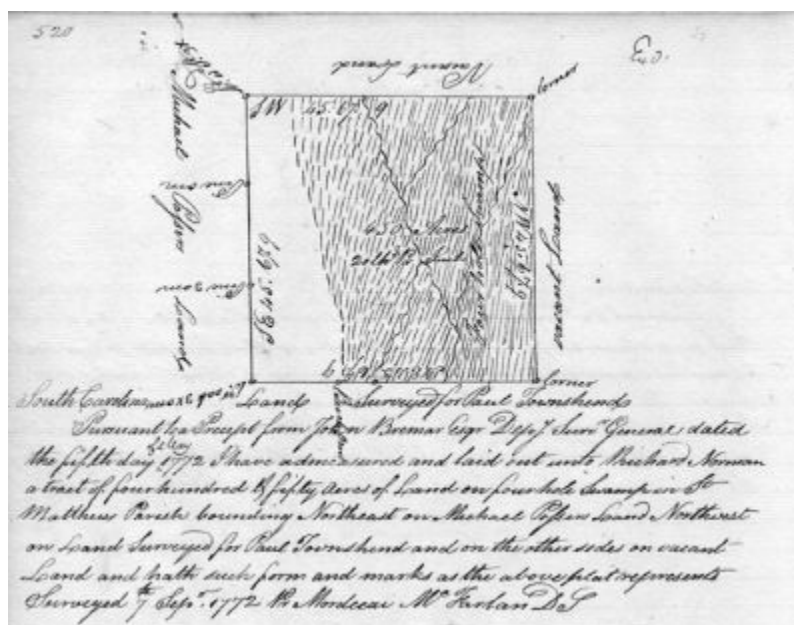 520
Exd.
Vacant Land
Corner
Michael
Land
SW 45: 67: 9
450 Acres
Four hole Swamp
vacant Land
corner
South Carolina
Land Surveyed for Paul Townshend
Pursuant to a Precept form John Bremar Esqr Depy Survr General dated
the fifth day of May 1772 I have admeasured and laid out unto Richard Norman
a tract of four hundred & fifty acres of Land on fourhole Swamp in St
Matthews Parish bounding Northeast on Michael Land Northwest
on Land Surveyed for Paul Townshend and on the other sides on vacant
Land and hath such form and marks as the above plat represents
Surveyed 7th Sepr. 1772 Pr Mordecai McFarlan D S